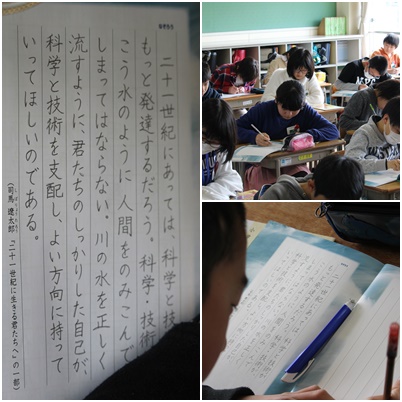 二十一世紀にあっては、科学と技
もっと発達するだろう。科学・技術
こう水のように人間をのみこんで
しまってはならない。川の水を正しく
流すように、君たちのしっかりした自己が、
科学と技術を支配し、よい方向に持って
いってほしいのである。
(司馬遼太郎「二十一世紀に生きる君たちへ」の一部)